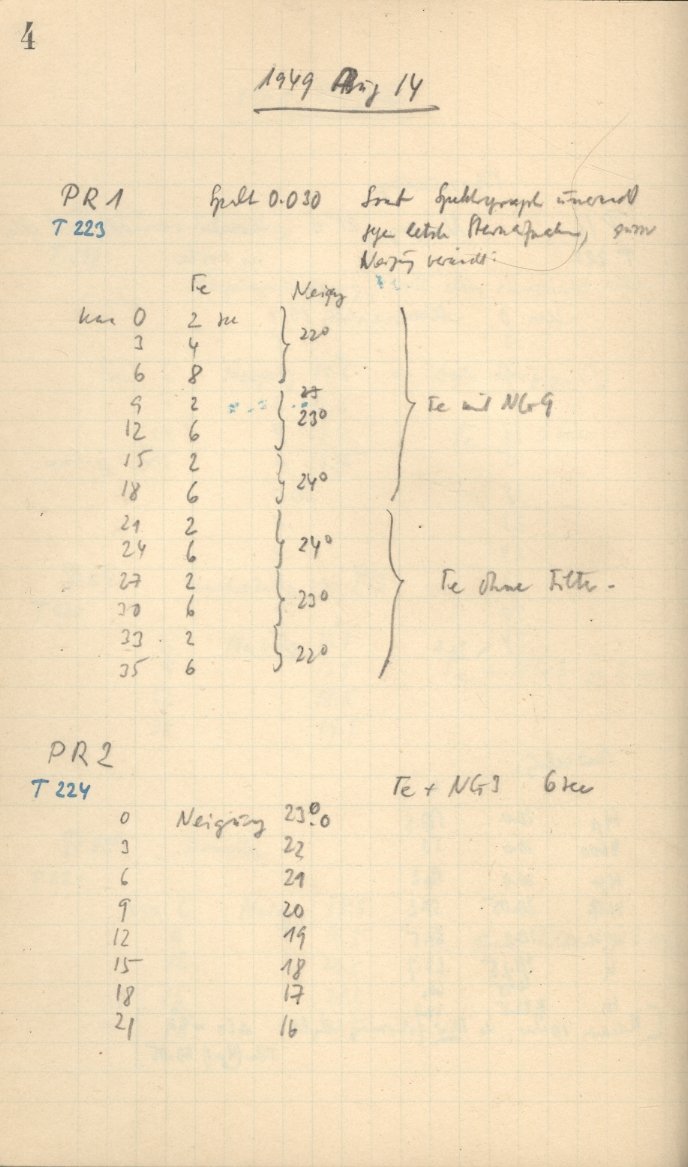 4
1949 Aug 14
PR 1 Spalt 0.030 Sonst Spektrograph
T 223
Te Neigg
0 2 sec
3 4 22°
6 8
9 2
12 6 23°
Te mit NG9
15 2
18 6 24°
21 2
24 6 24°
27 2
Te ohne Filter.
30 6 23°
33 2
35 6 22°
PR 2
T 224 Te + NG3 6 sec
0 Neigung 23°.0
3 22
6 21
9 20
12 19
15 18
18 17
21 16